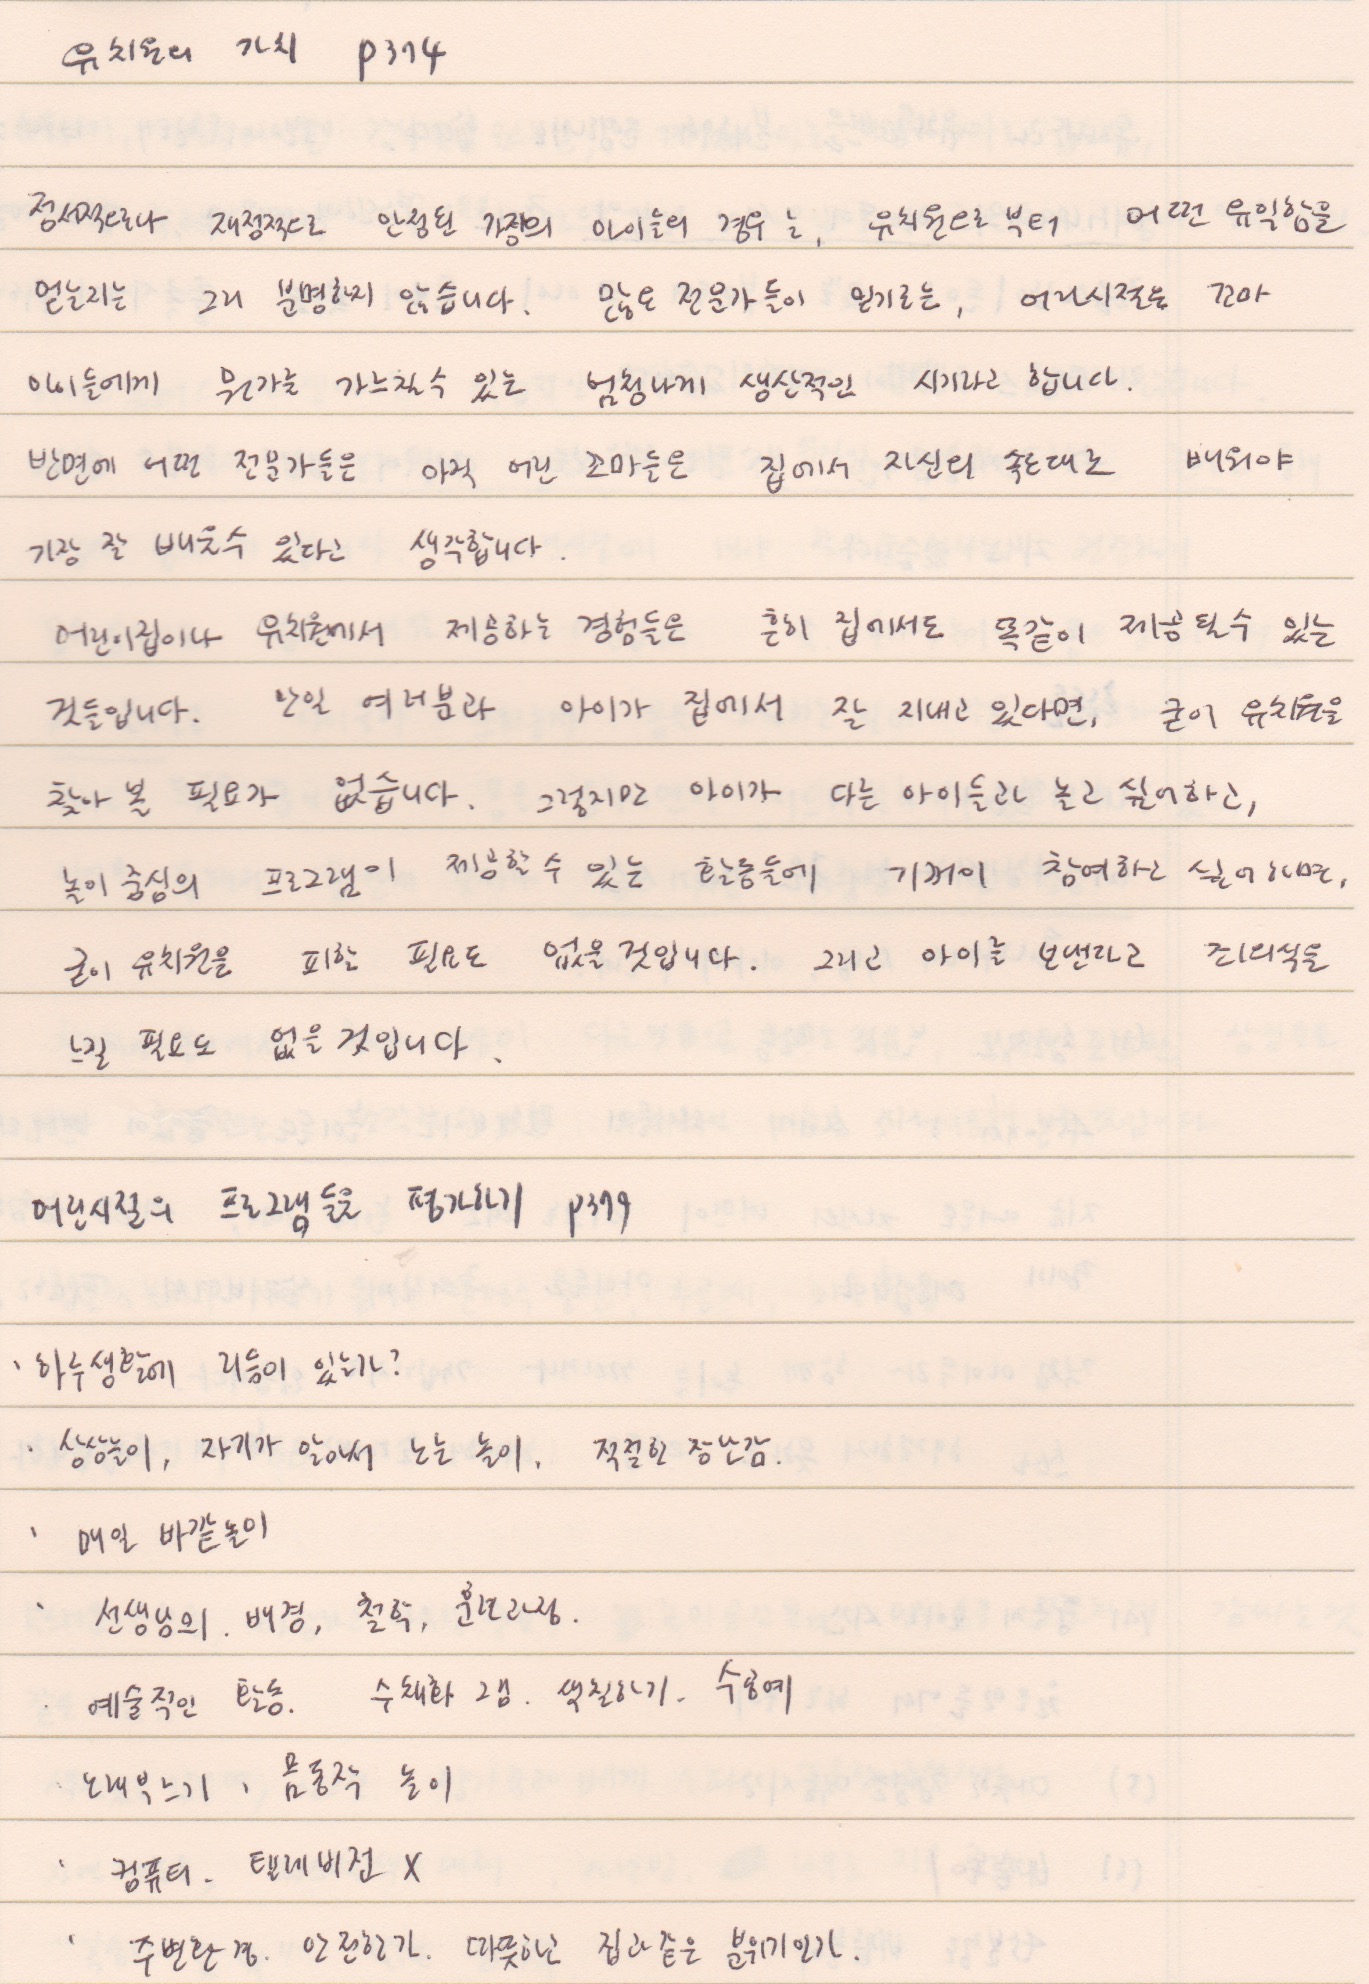 유치원의 가치 p374
정서적으로나 재정적으로 안정된 가정의 아이들의 경우는, 유치원으로부터 어떤 유익함을
얻는지는 그리 분명하지 않습니다. 많은 전문가들이 말기로는, 어린시절은 꼬마
아이들에게 뭔가를 가르칠수 있는 엄청나게 생산적인 시기라고 합니다.
반면에 어떤 전문가들은 아직 어린 꼬마들은 집에서 자신의 속도대로 배워야
가장 잘 배울수 있다고 생각합니다.
어린이집이나 유치원에서 제공하는 경험들은 흔히 집에서도 똑같이 제공될수 있는
것들입니다. 만일 여러분과 아이가 집에서 잘 지내고 있다면, 굳이 유치원을
찾아 볼 필요가 없습니다. 그렇지만 아이가 다른 아이들과 놀고 싶어하고,
놀이 중심의 프로그램이 제공할 수 있는 활동들에 기꺼이 참여하고 싶어하면,
굳이 유치원을 피할 필요도 없을 것입니다. 그리고 아이를 보낸다고 죄의식을
느낄 필요도 없을 것입니다.
어린시절의 프로그램들을 평가하기 p379
· 하루생활에 리듬이 있는가?
· 상상놀이, 자기가 알아서 노는 놀이. 적절한 장난감.
· 매일 바깥놀이
· 선생님의 배경, 철학, 훈련과정.
· 예술적인 활동. 수채화 그림. 색칠하기. 수공예
· 노래부르기, 몸동작 놀이
· 컴퓨터. 텔레비전 X
· 주변환경. 안전한가. 따뜻하고 집과같은 분위기인가.